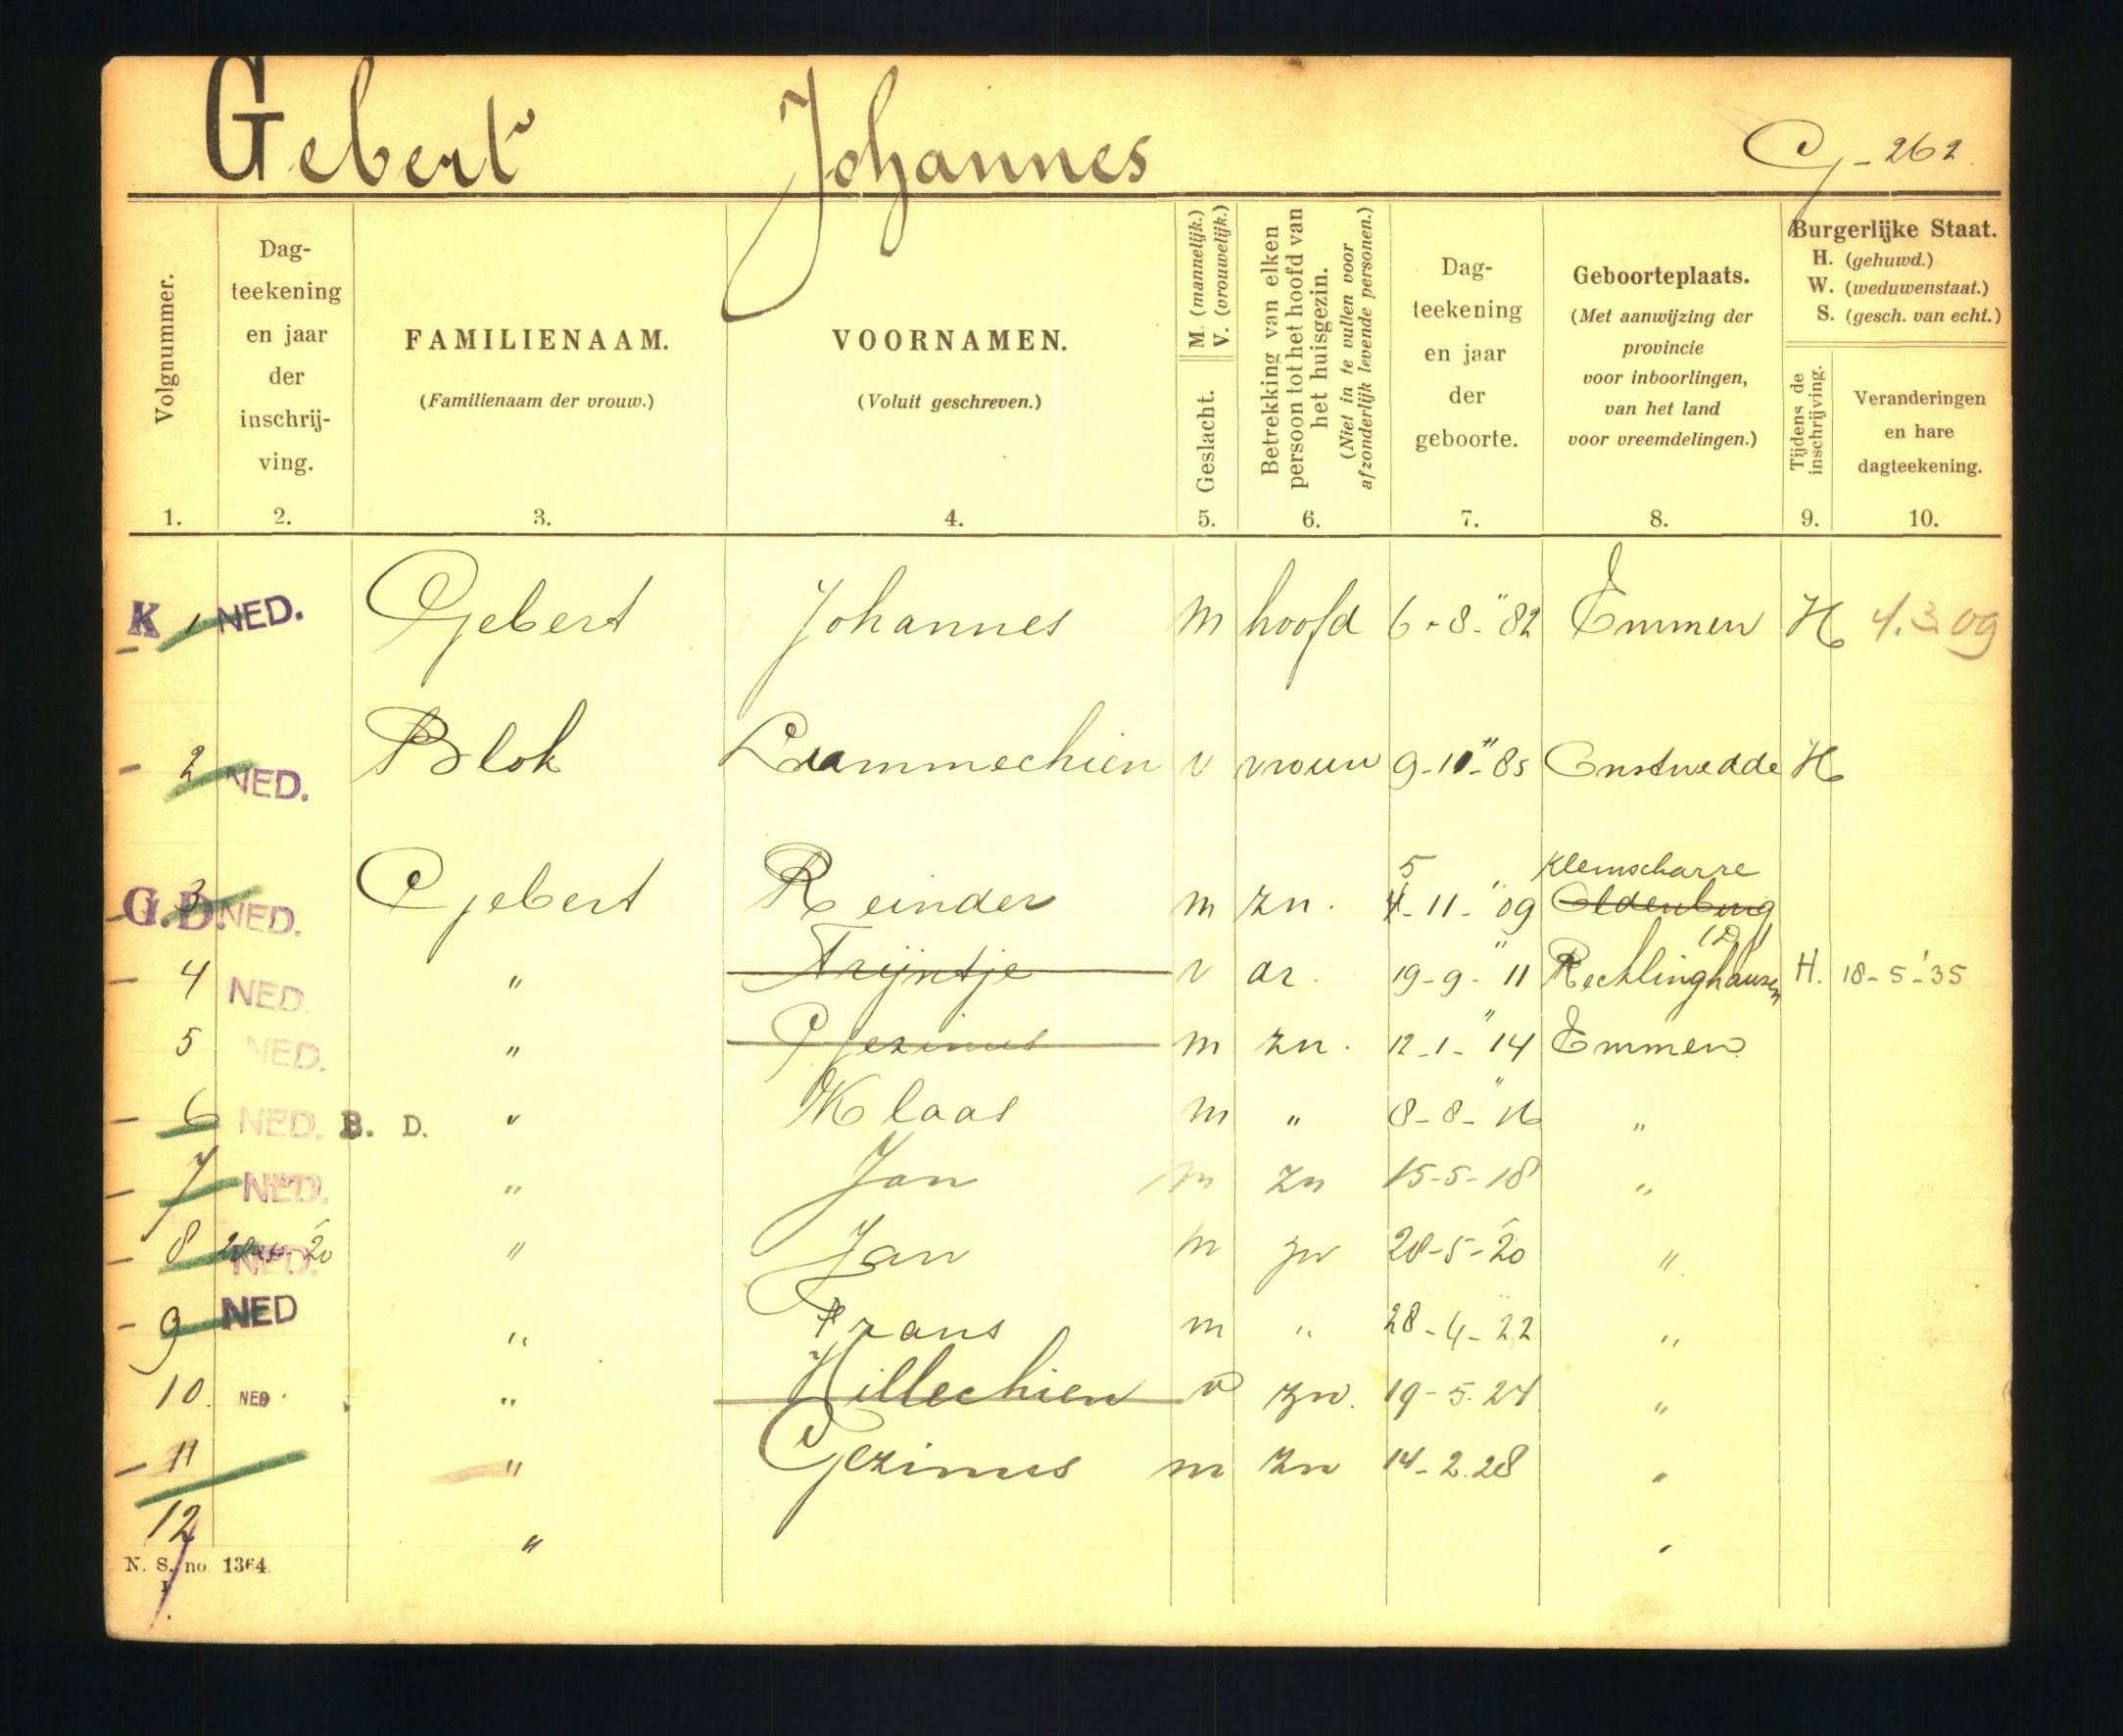 Gebert Johannes G-262.
Volgnummer.
Dag-
teekening
en jaar
der
inschrij-
ving.
FAMILIENAAM.
(Familienaam der vrouw.)
VOORNAMEN.
(Voluit geschreven.)
M. (mannelijk.)
V. (vrouwelijk.)
Geslacht.
Betrekking van elken
persoon tot het hoofd van
het huisgezin.
(Niet in te vullen voor
afzonderlijk levende personen.)
Dag-
teekening
en jaar
der
geboorte.
Geboorteplaats.
(Met aanwijzing der
provincie
voor inboorlingen,
van het land
voor vreemdelingen.)
Burgerlijke Staat.
H. (gehuwd.)
W. (weduwenstaat.)
S. (gesch. van echt.)
Tijdens de
inschrijving.
Veranderingen
en hare
dagteekening.
1. 2. 3. 4. 5. 6. 7. 8. 9. 10.
K 1 NED. Gebert Johannes m hoofd 6-8-"82 Emmen H 4.3.09
- 2 NED. Blok Lammechien v vrouw 9-10-"85 Onstwedde H
5 Kleinscharre
G.D. 3 NED. Gebert Reinder m zn. 4-11-"09 Oldenburg
(D)
- 4 NED. " Trijntje v dr. 19-9-"11 Recklinghausen H. 18-5-'35
5 NED. " Gezinus m zn. 12-1-"14 Emmen
- 6 NED. B. D. " Klaas m " 8-8-"16 "
- 7 NED. " Jan m zn 15-5-18 "
- 8 NED. 20 " Jan m zn 28-5-20 "
- 9 NED " Frans m " 28-4-22 "
10. NED. " Hillechien v zn. 19-5-24 "
- 11 " Gezinus m zn 14-2.28 "
12 " "
N. S. no 1364.